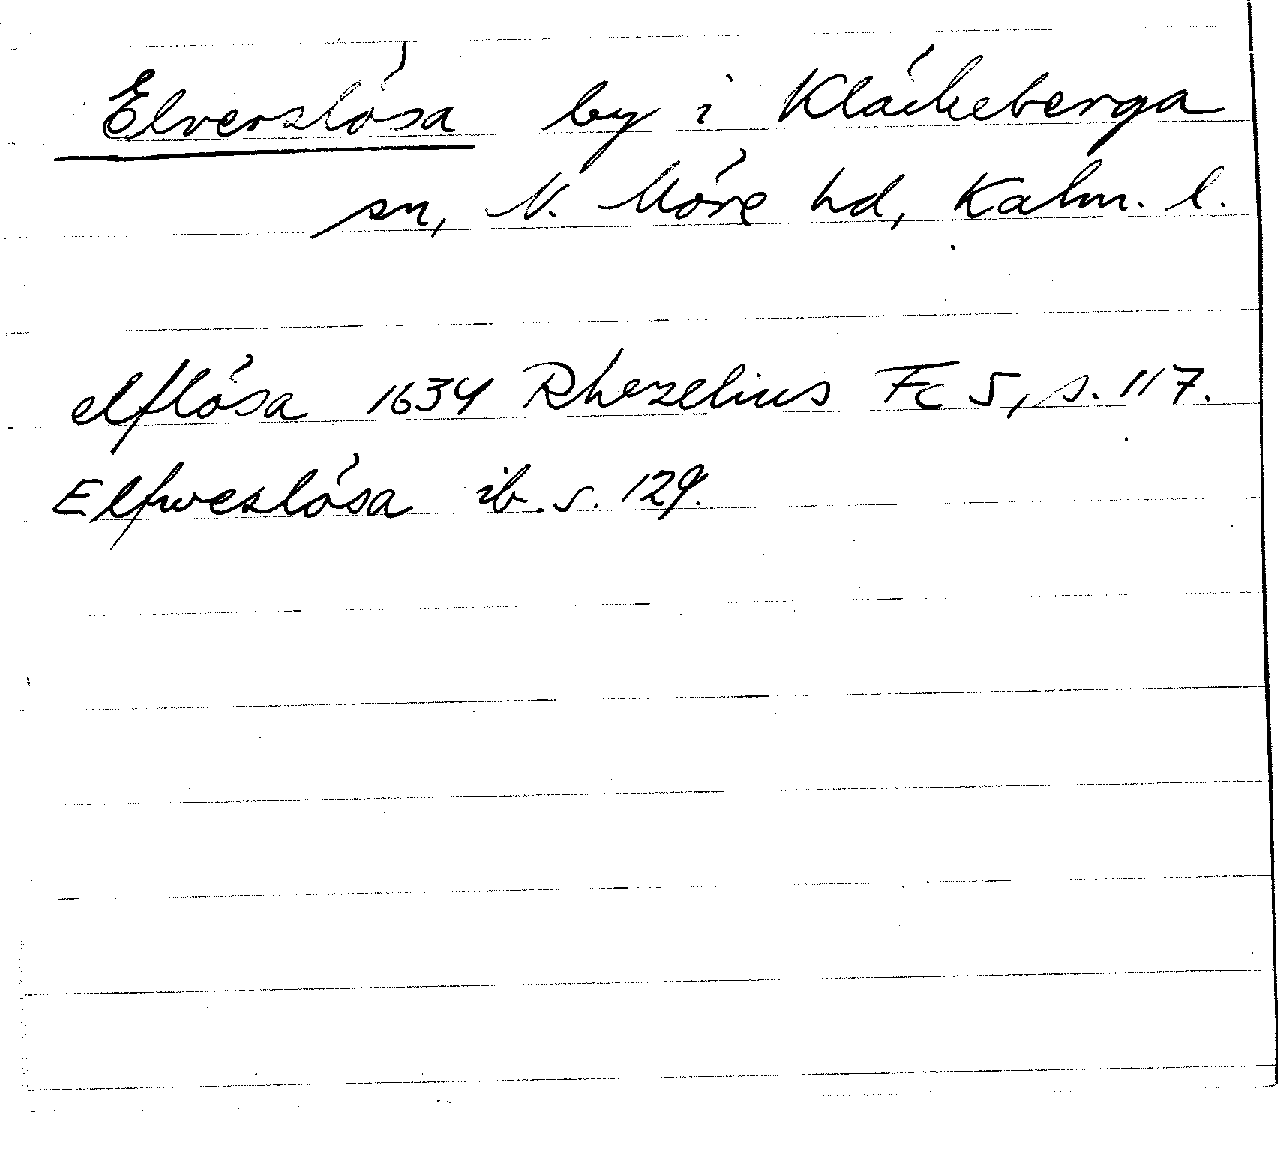 Elverslösa by i Kläckeberga
sn, N. Möre hd, Kalm. l.
elflösa 1634 Rhezelius Fc 5, s. 117.
Elfweslösa ib. s. 129.